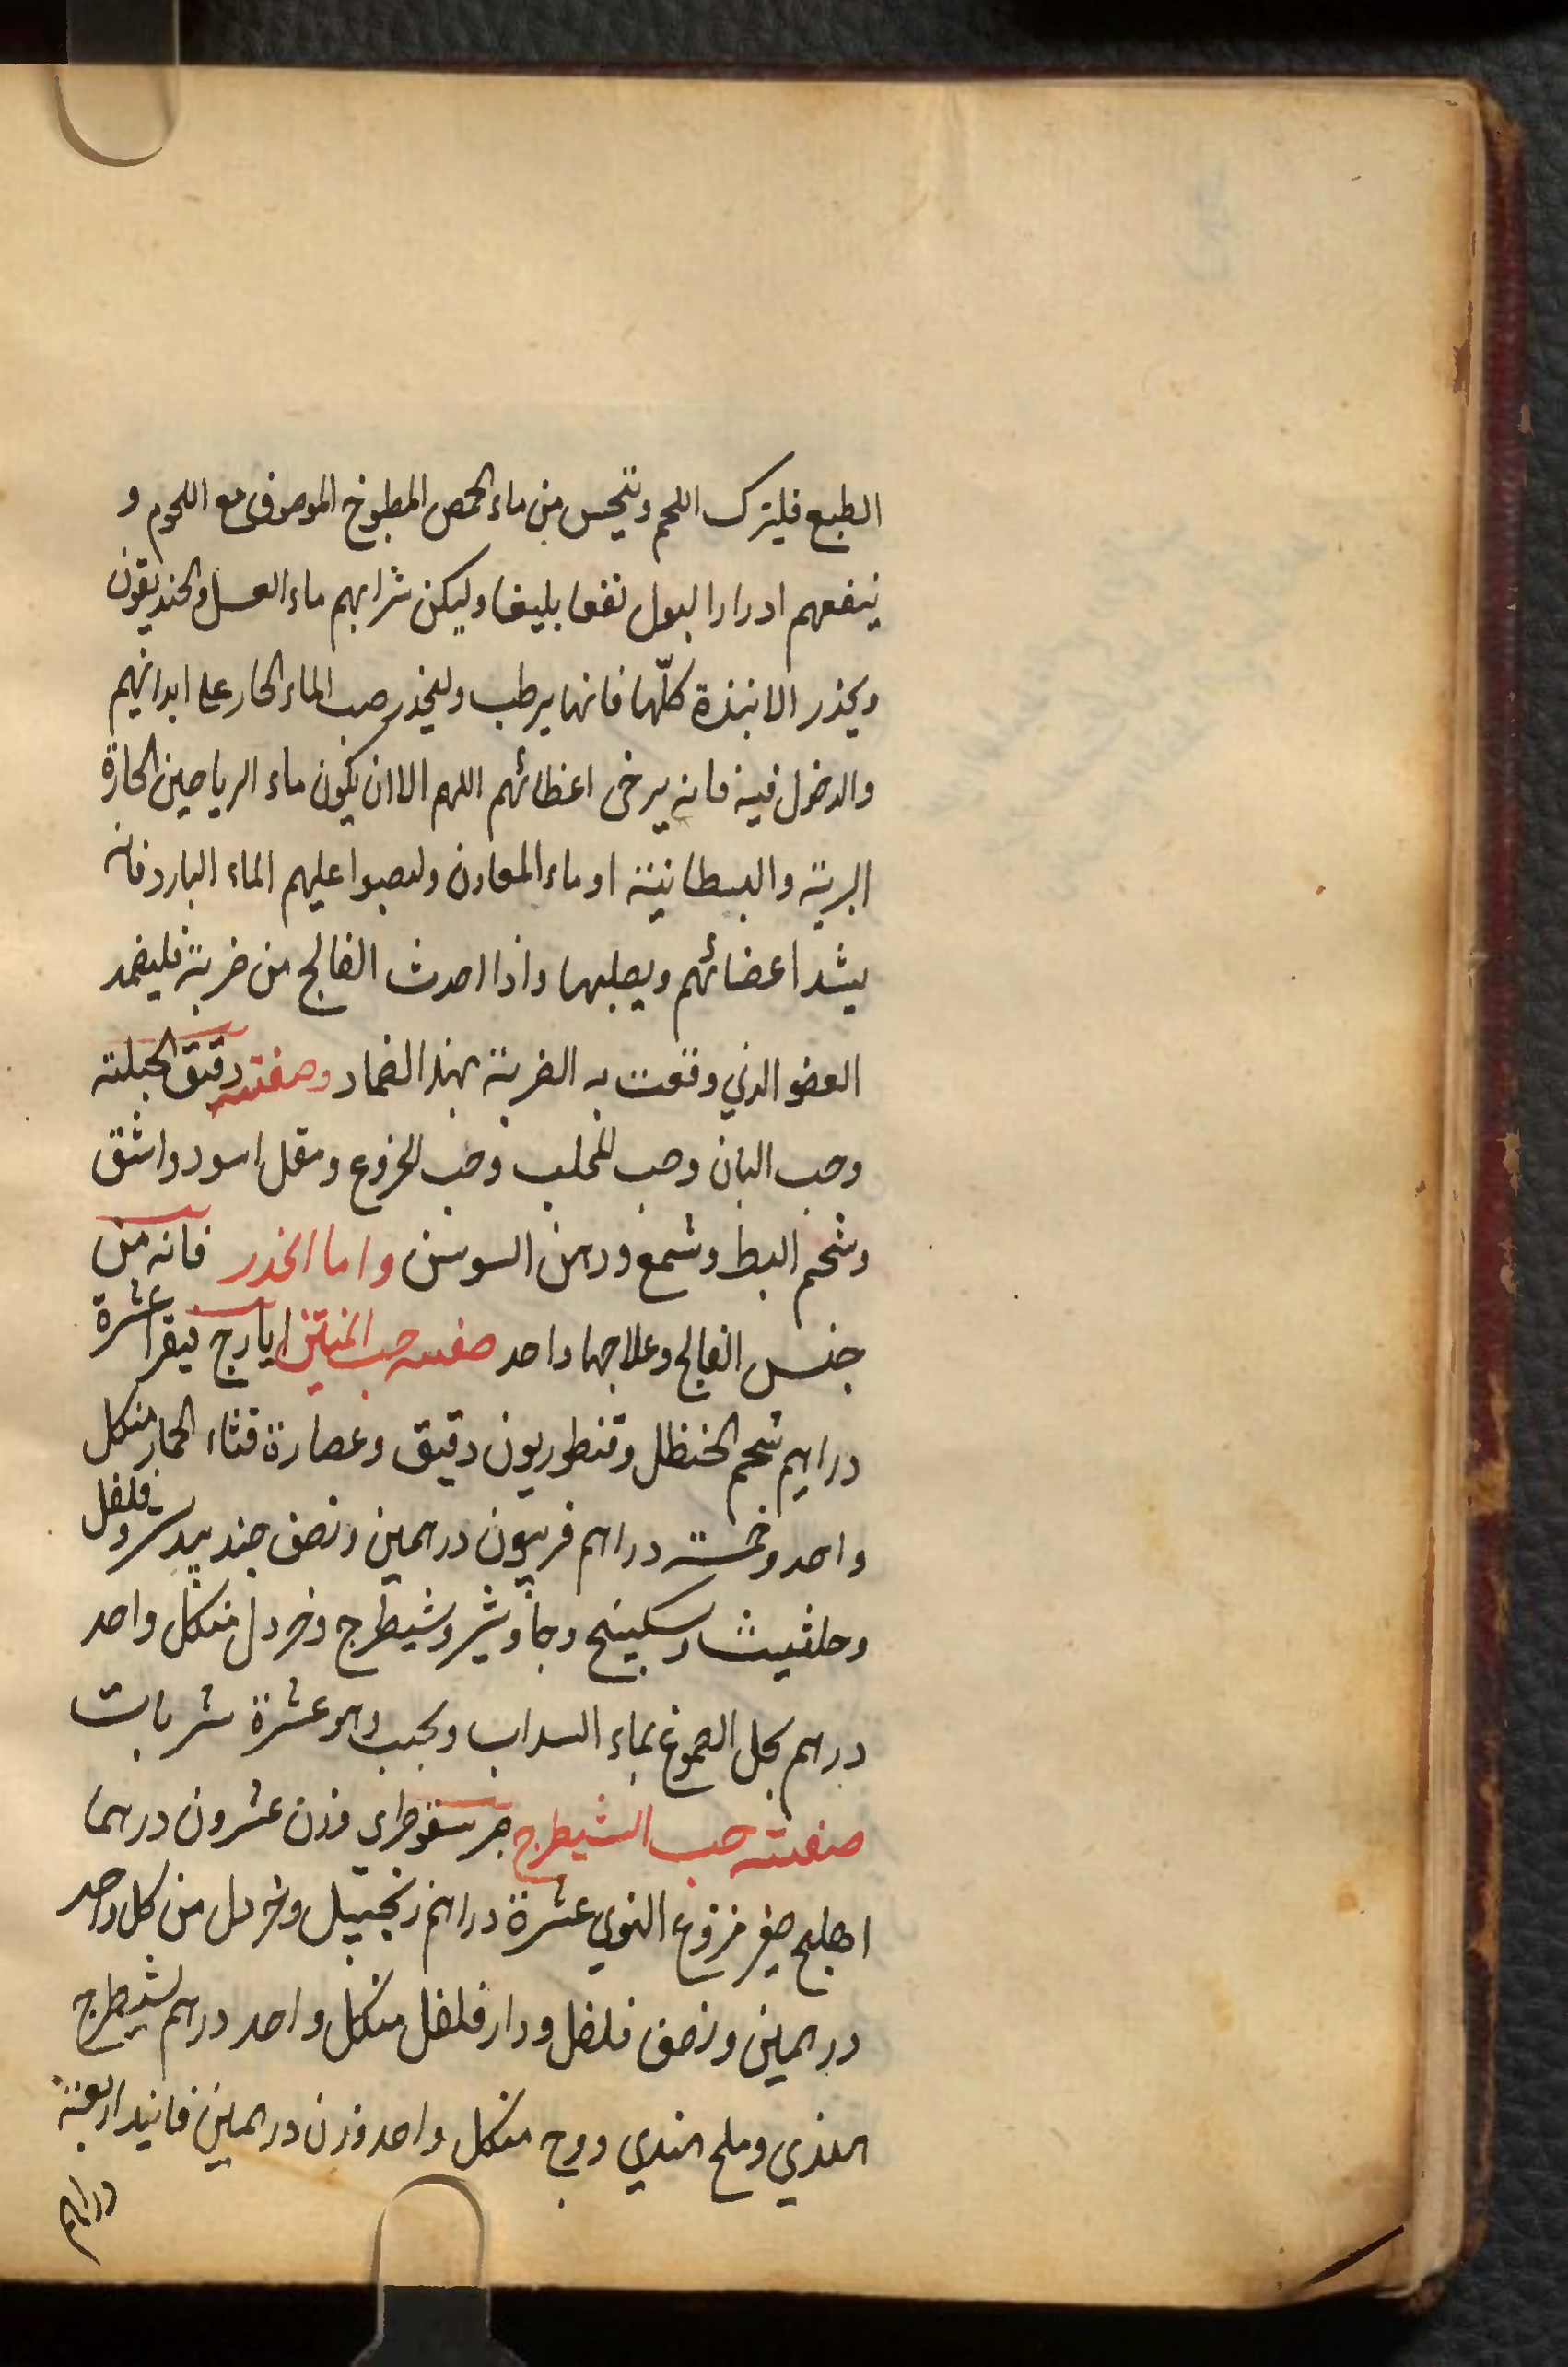 الطبع فليترك اللحم ويتحسى من ماء الحمص المطبوخ الموصوف مع اللحوم و
ينفعهم ادرارا لبول نفعا بليغا وليكن شرابهم ماء العسل والخنديقون
ويحذر الانبذة كلّها فانها يرطب وليحذر صب الماء الحار على ابدانهم
والدخول فيه فانه يرخى اعظائهم اللهم الا ان يكون ماء الرياحين الحارة
البرية والبسطانية او ماء المعادن وليصبوا عليهم الماء البارد فانه
يشد اعضائهم ويصلبها واذا احدث الفالج من ضربة فليضمد
العضو الذي وقعت به الضربة بهذا الضماد وصفته دقيق الحبلة
وحب البان وحب المحلب وحب الخروع ومقل اسود واشق
وشحم البط وشمع ودهن السوسن واما الخدر فانه من
جنس الفالج وعلاجها واحد صفة حب المنتن ايارج فيقرا عشرة
دراهم شحم الحنظل وقنطوريون دقيق وعصارة قثاء الحمار منكل
واحد وخمسة دراهم فربيون درهمين ونصف جندبيدستر وفلفل
وحلثيث وسكبينج وجاوشير وشيطرج وخردل منكل واحد
درهم يحل الصموغ بماء السداب ويحبب وهو عشرة شربات
صفة حب الشيطرج صبر سقوطرى وزن عشرون درهما
اهليلج صفر منزوع النوى عشرة دراهم زنجبيل وخردل من كل واحد
درهمين ونصف فلفل ودار فلفل منكل واحد درهم شيطرج
الهندي وملح الهندي ووج منكل واحد وزن درهمين فانيد اربعة
دراهم